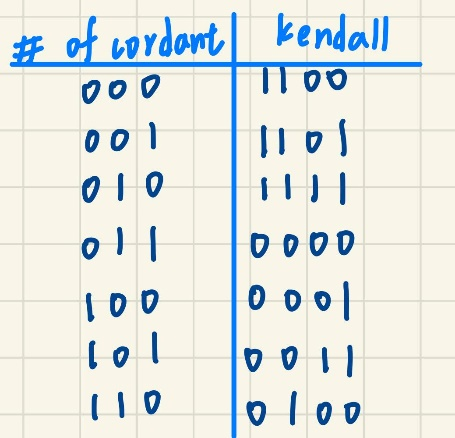 # of cordant kendall
000 1100
001 1101
010 1111
011 0000
100 0001
101 0011
110 0100